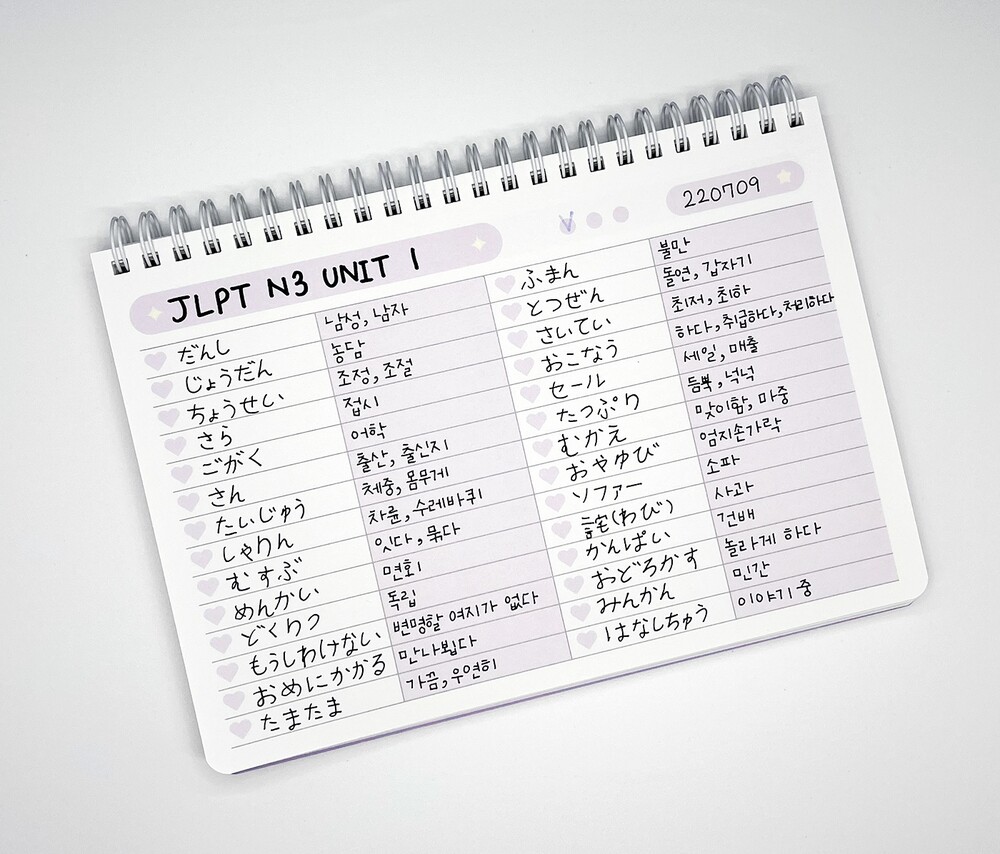 JLPT N3 UNIT 1
220709
だんし 남성, 남자
じょうだん 농담
ちょうせい 조정, 조절
さら 접시
ごがく 어학
さん 출산, 출신지
たいじゅう 체중, 몸무게
しゃりん 차륜, 수레바퀴
むすぶ 잇다, 묶다
めんかい 면회
どくりつ 독립
もうしわけない 변명할 여지가 없다
おめにかかる 만나뵙다
たまたま 가끔, 우연히
ふまん 불만
とつぜん 돌연, 갑자기
さいてい 최저, 최하
おこなう 하다, 취급하다, 처리하다
セール 세일, 매출
たっぷり 듬뿍, 넉넉
むかえ 맞이함, 마중
おやゆび 엄지손가락
ソファー 소파
詫(わび) 사과
かんぱい 건배
おどろかす 놀라게 하다
みんかん 민간
はなしちゅう 이야기 중